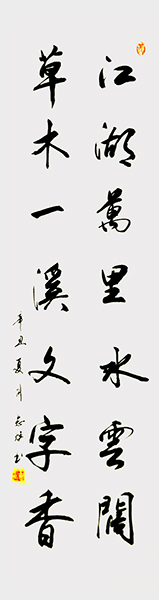 江湖萬里水雲闊
草木一溪文字香
辛丑夏月
書